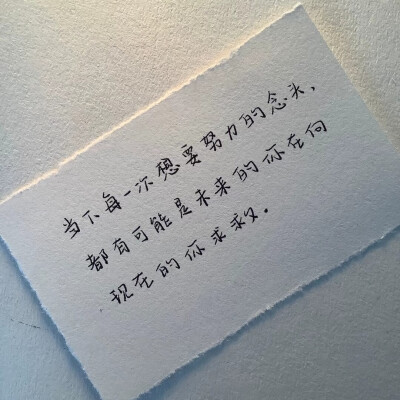 当下每一次想要努力的念头、
都有可能是未来的你在向
现在的你求救。